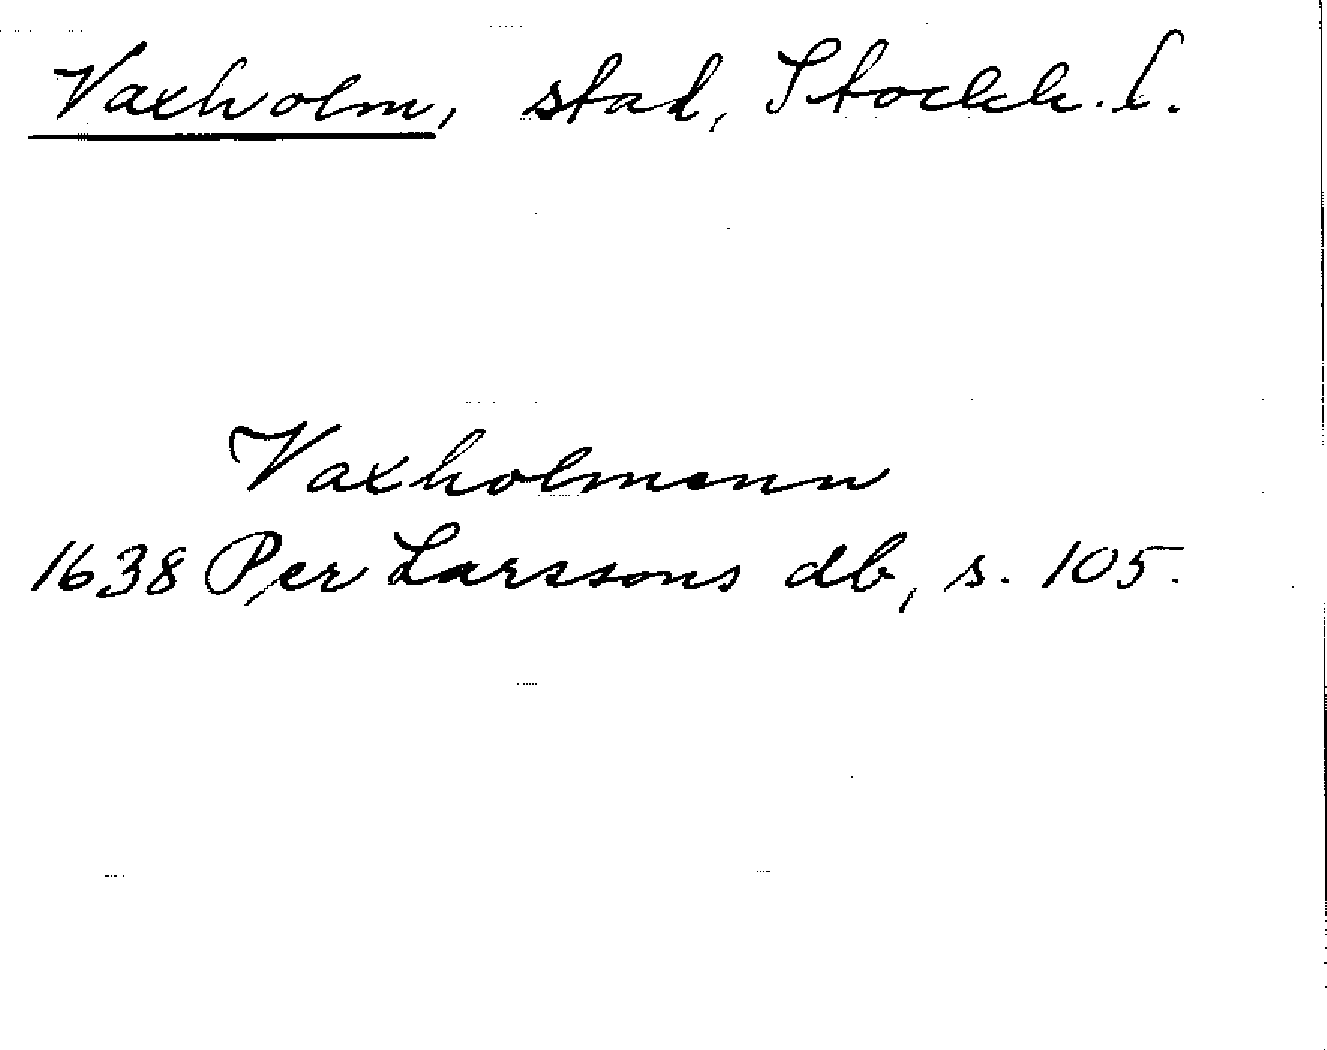 Vaxholm, stad, Stockh. l.
Vaxholmenn
1638 Per Larssons db, s. 105.